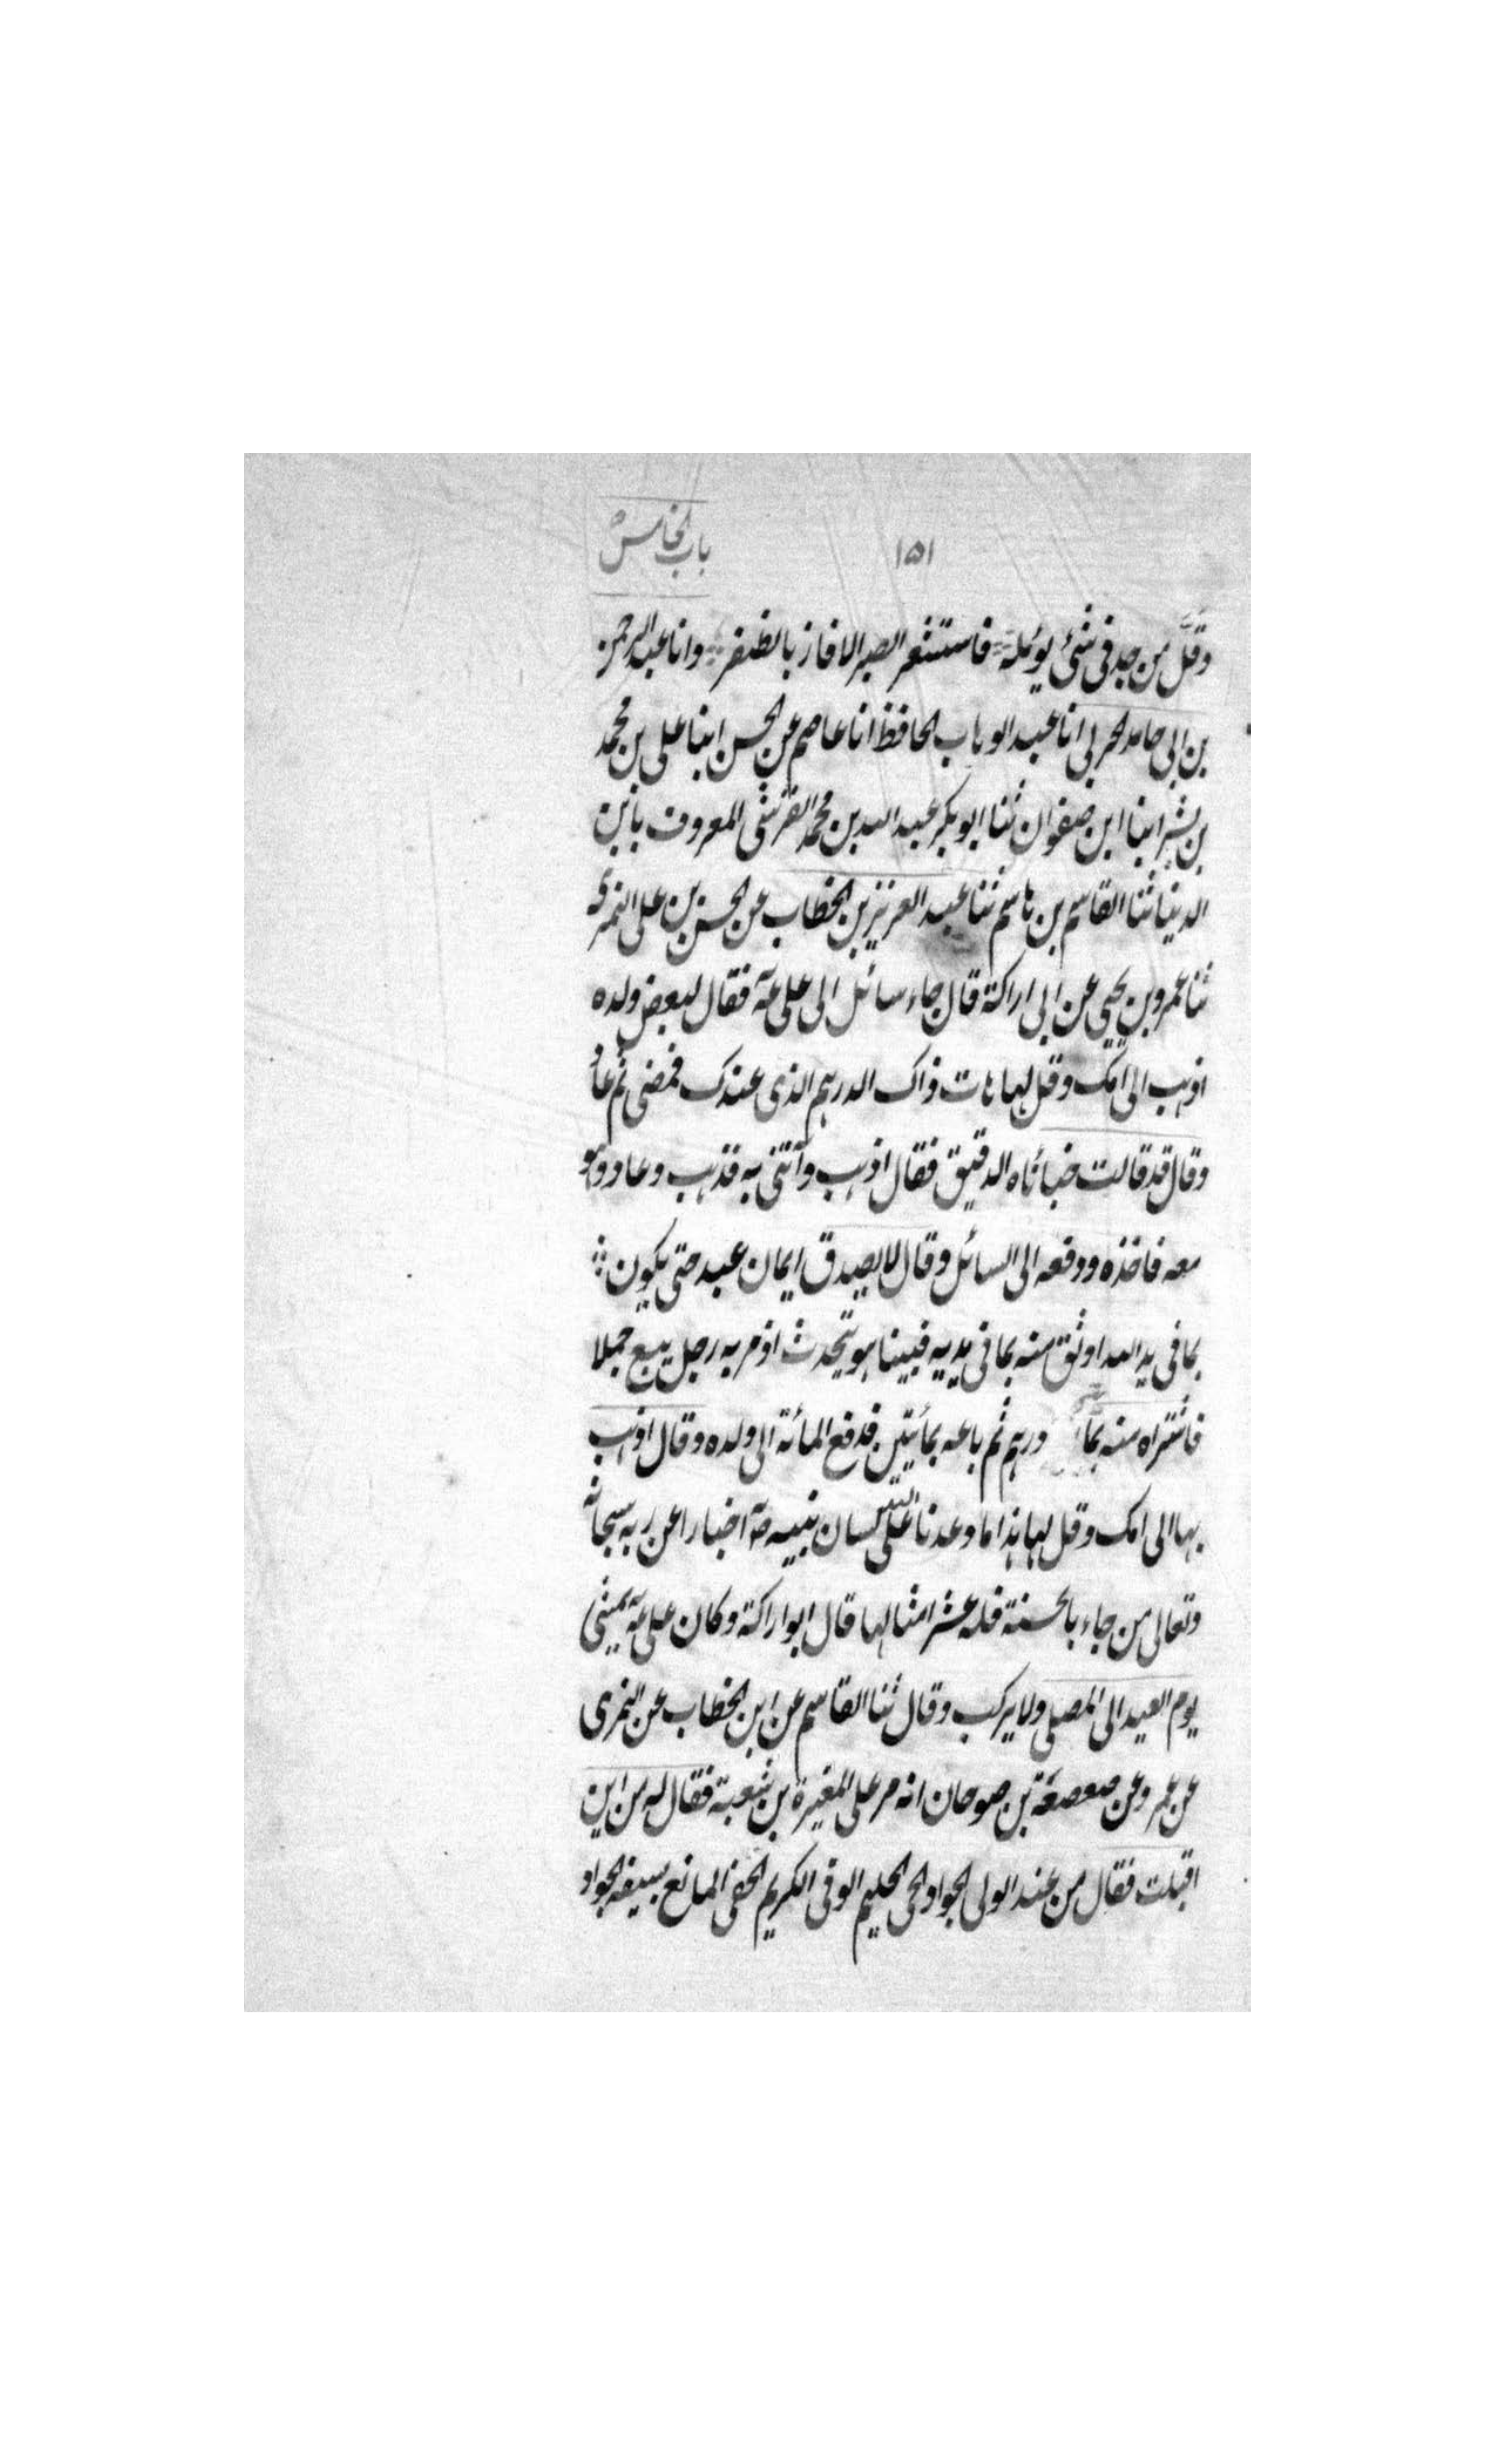 ١٥١ باب الخامس
وقل من جد فی شئ یوٴمله فاستشعر الصبر الا فاز بالظفر وانا عبد الرحمن
بن ابی حامد الحربی انا عبد الوہاب الحافظ انا عاصم عن الحسن ابنا علی بن محمد
بن بشر ابنا ابن صفوان ثنا ابو بکر عبد اللہ بن محمد القرشی المعروف بابن
الدینا ثنا القاسم بن ہاشم ثنا عبد العزیز بن الخطاب عن الحسن بن علی النمری
ثنا عمرو بن یحیی عن ابی اراکة قال جاء سائل الی علی عہ فقال لبعض ولده
اذہب الی امک وقل لہا ہات ذاک الدرہم الذی عندک فمضی ثم عاد
وقال قد قالت خبائناه الدقیق فقال اذہب وآتنی به فذہب وعاد وہو
معه فاخذه ودفعه الی السائل وقال لا یصدق ایمان عبد حتی یکون
بما فی ید اللہ اوثق منه بما فی یدیه فبینا ہو یتحدث اذ مر به رجل یبیع جملا
فاشتراه منه بما درہم ثم باعه بمائتین فدفع المائة الی ولده وقال اذہب
بہا الی امک وقل لہا ہذا ما وعدنا اللہ علی لسان نبیه صہ اخبارا عن ربه سبحانه
وتعالی من جاء بالحسنة فله عشر امثالہا قال ابو اراکة وکان علی عہ یمشی
یوم العید الی المصلی ولا یرکب وقال ثنا القاسم عن ابن الخطاب عن النمری
عن عمرو عن صعصعة بن صوحان انه مر علی المغیرة بن شعبة فقال له من این
اقبلت فقال من عند الولی الجواد الحی الحلیم الوفی الکریم الحفی المانع بسیفه الجواد